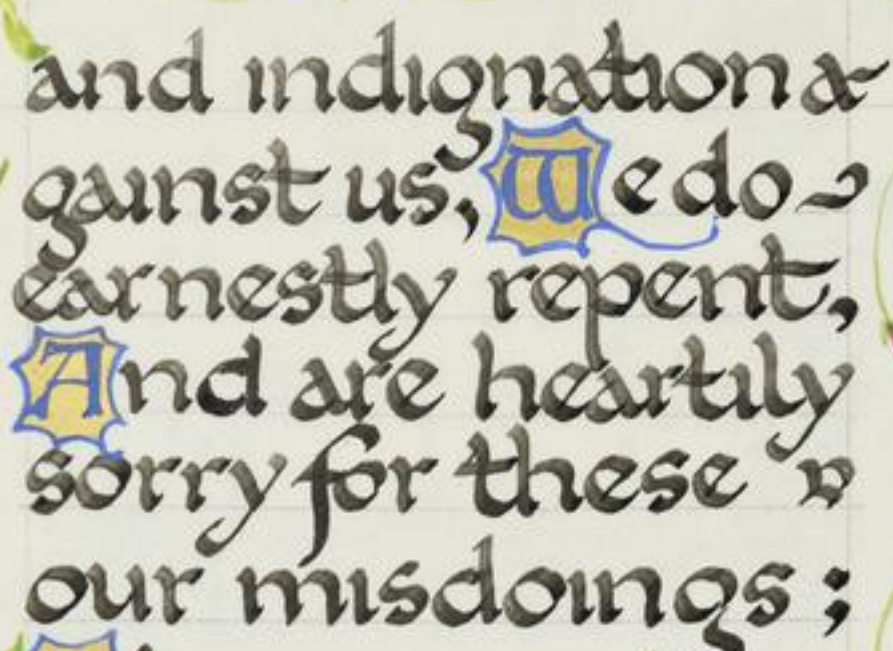 and indignation a-
gainst us, We do
earnestly repent,
And are heartily
sorry for these
our misdoings ;